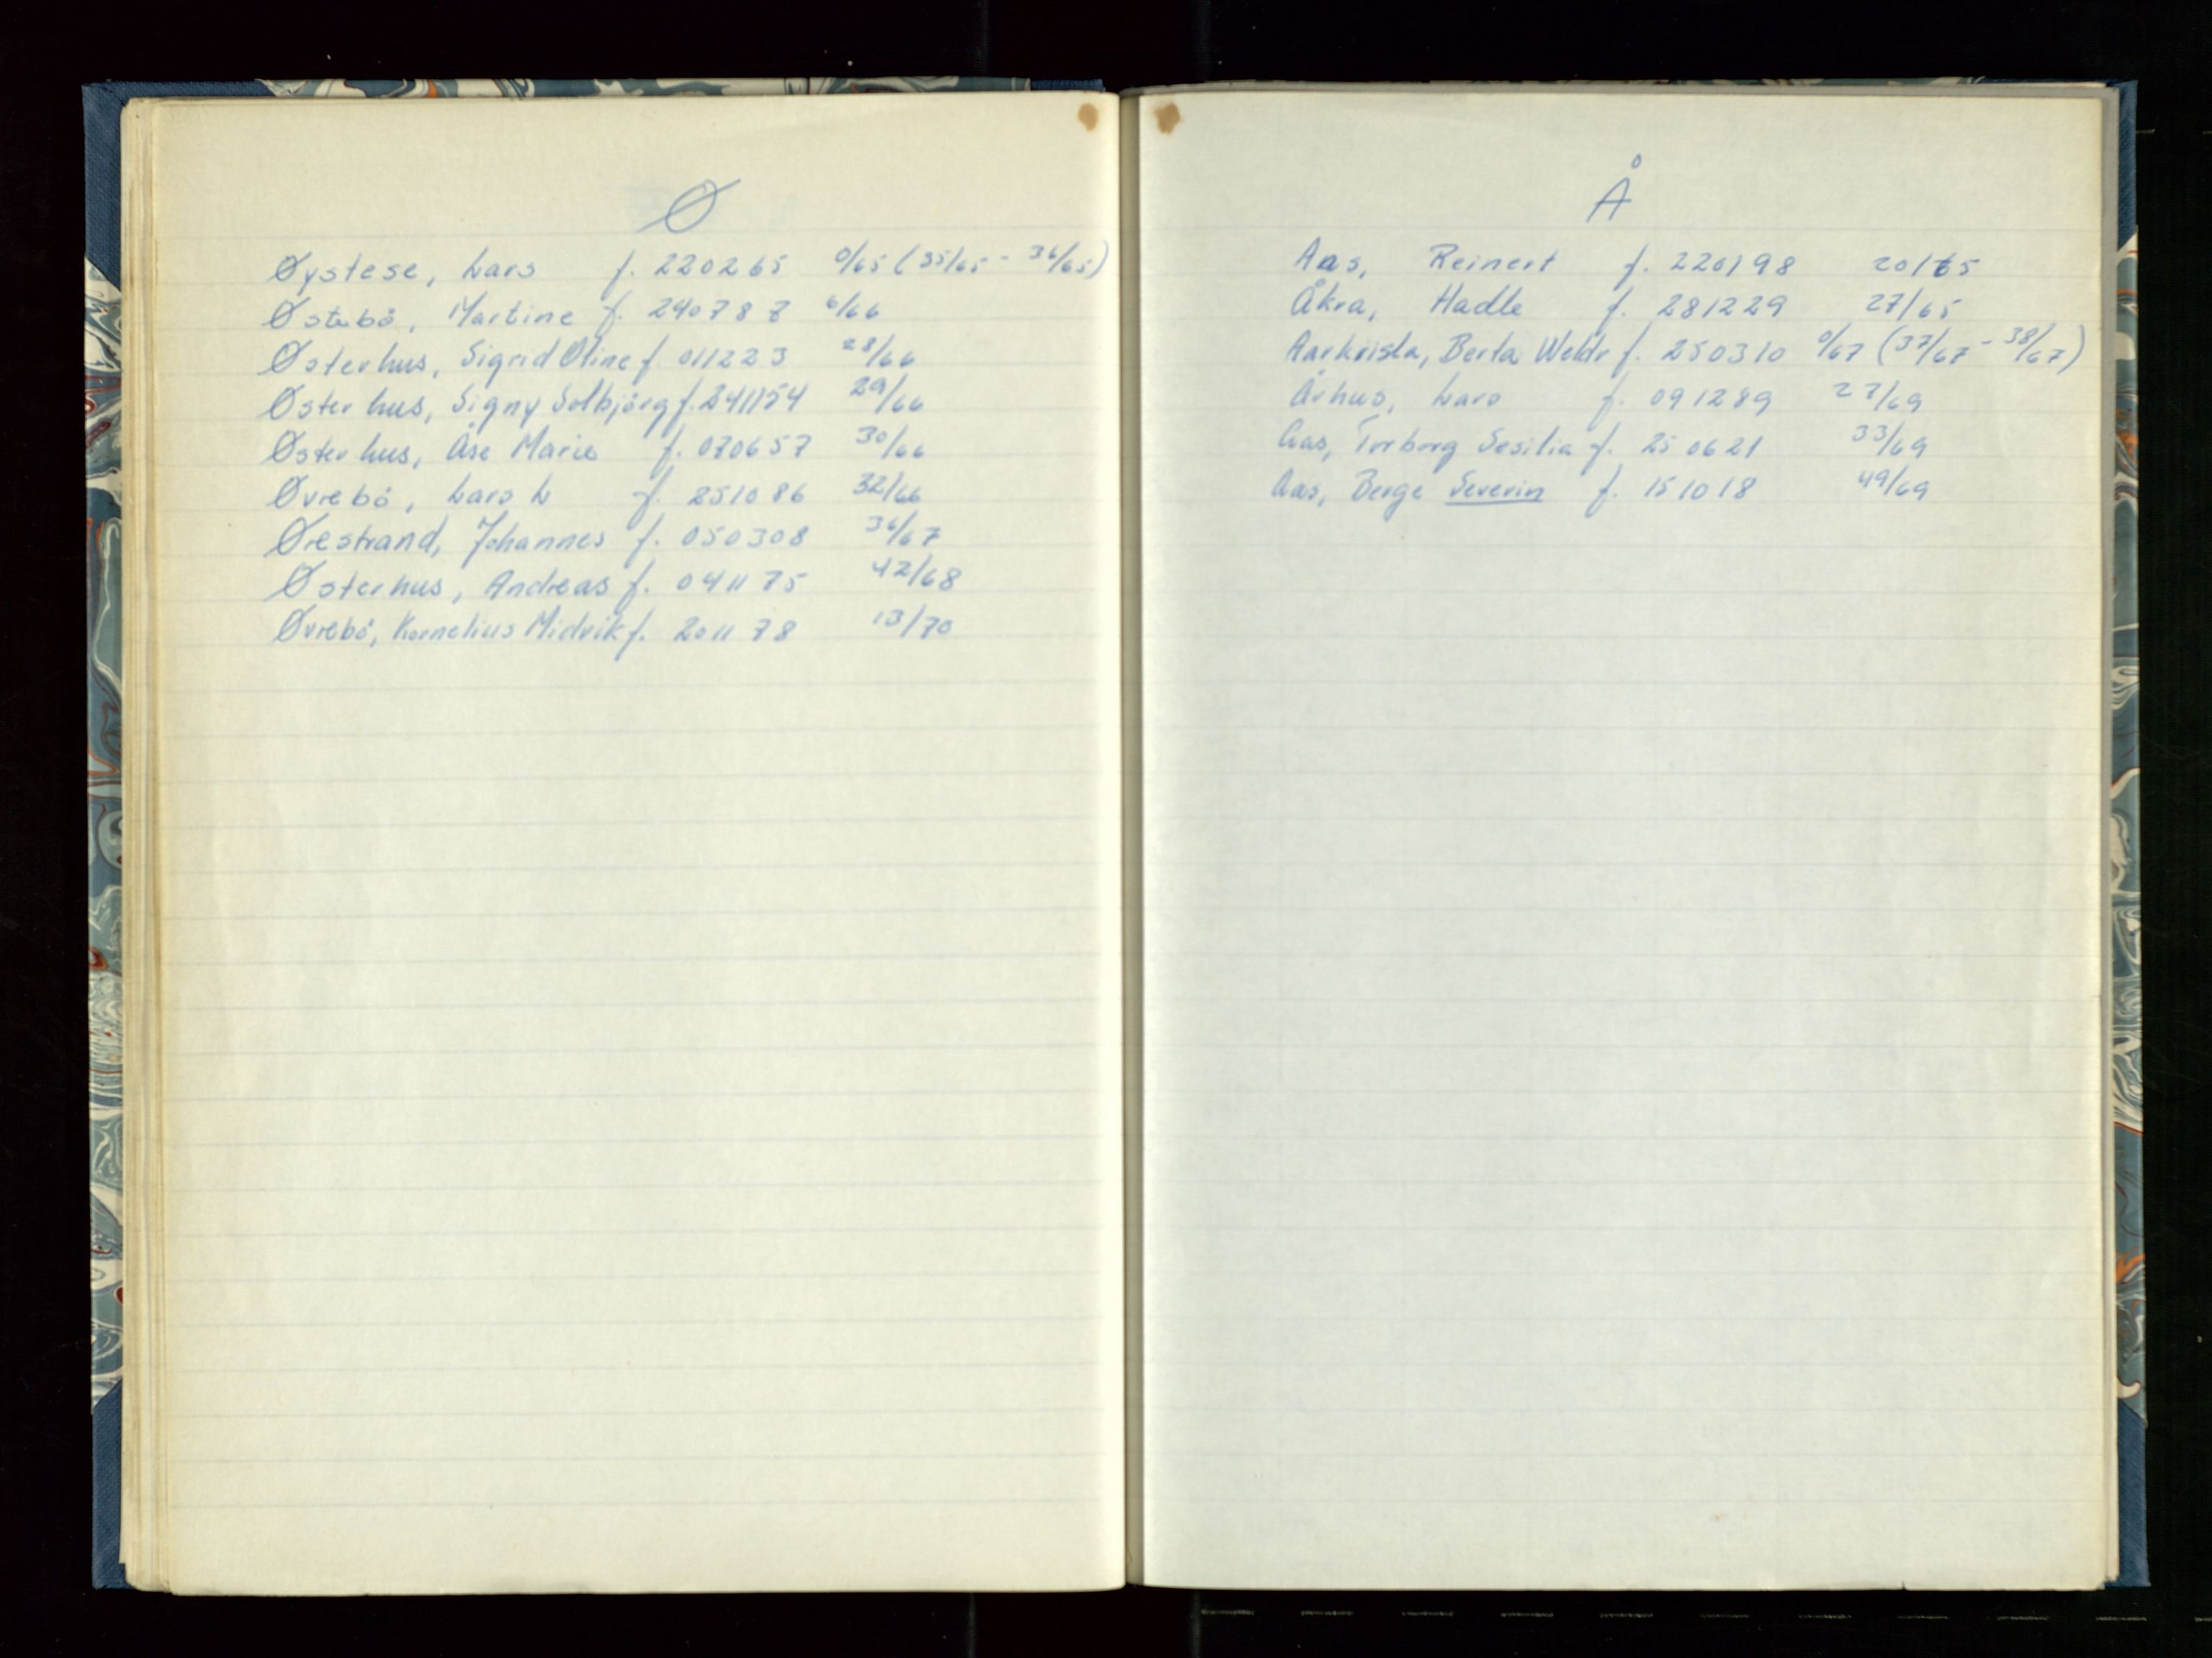 Ø
Øystese, Lars f. 220265 0/65 (35/65 - 36/65)
Østebö, Martine f. 240787 6/66
Østerhus, Sigrid Oline f. 011223 28/66
Østerhus, Signy Solbjörg f. 241154 29/66
Østerhus, Åse Marie f. 070657 30/66
Øvrebö, Lars L f. 251086 32/66
Ørestrand, Johannes f. 050308 36/67
Østerhus, Andreas f. 041175 42/68
Øvrebö, Kornelius Midvik f. 201178 13/70
Å
Aas, Reinert f. 220198 20/65
Åkra, Hadle f. 281229 27/65
Aarkrisla, Berta f. 250310 0/67 (37/67 - 38/67)
Århus, Lars f. 091289 27/69
Aas, Torborg Sesilia f. 250621 33/69
Aas, Berge Severin f. 151018 49/69